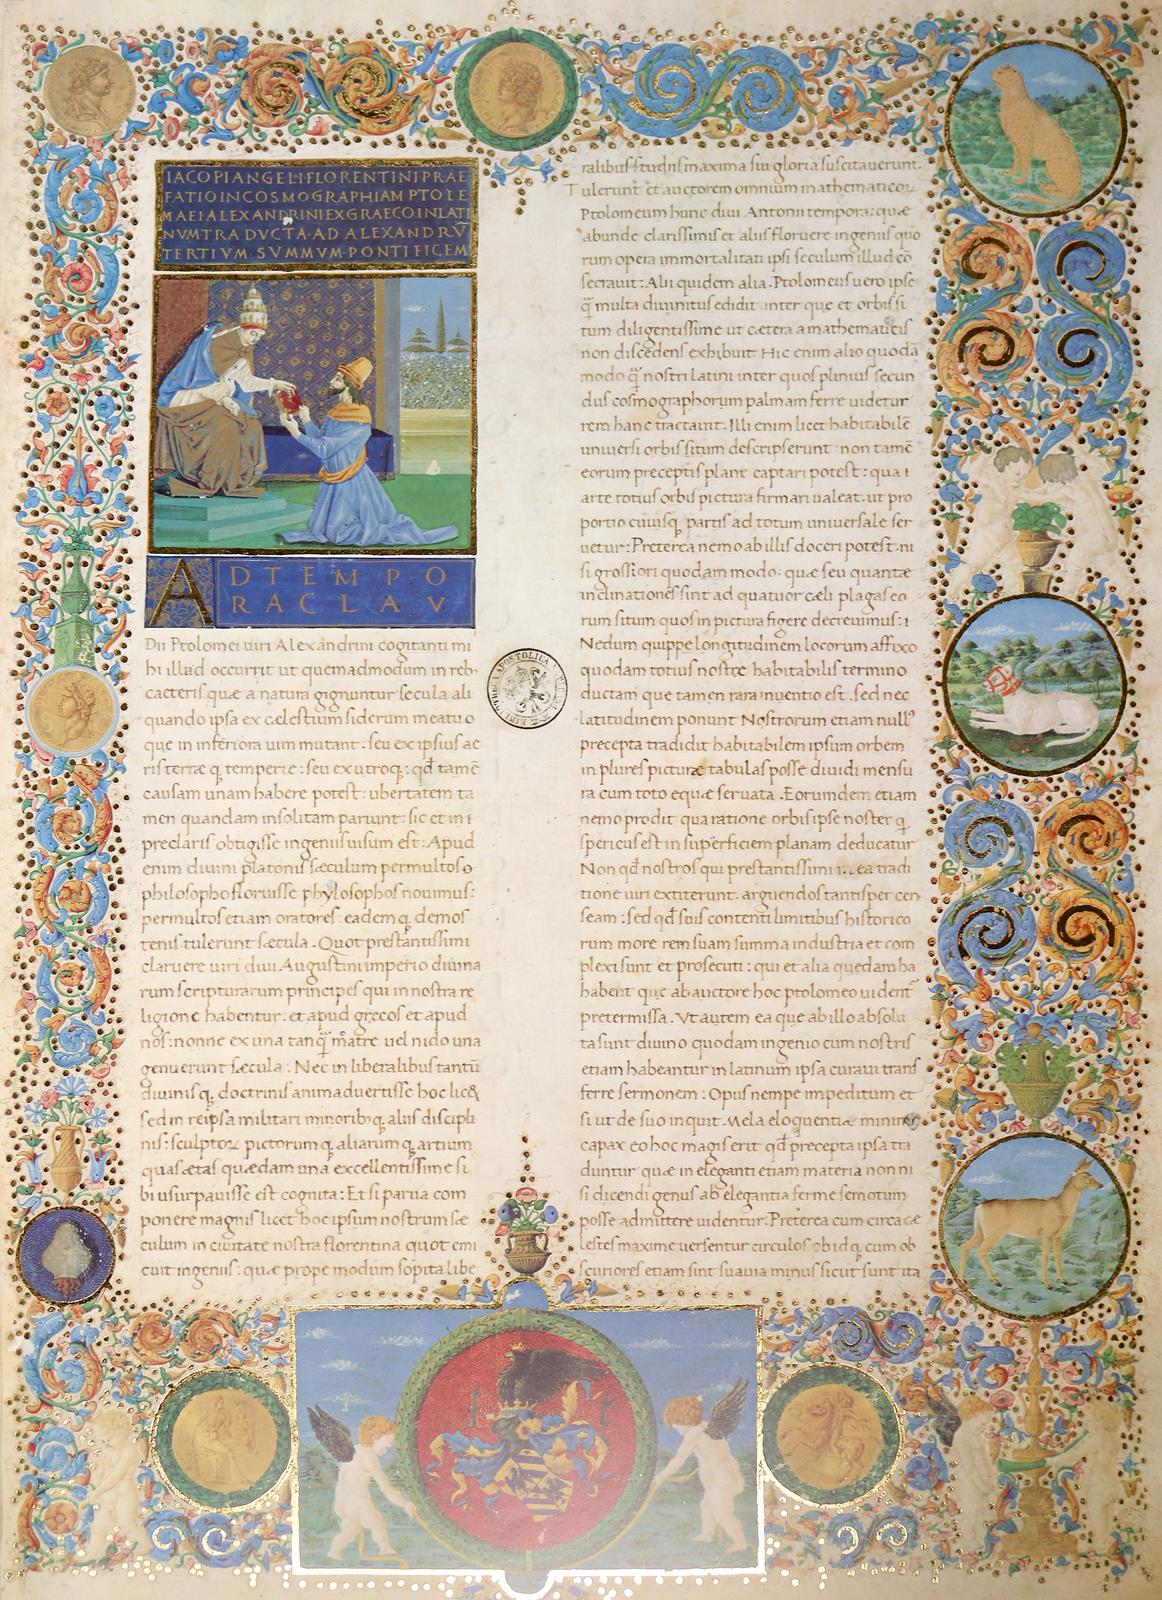 IACOPI ANGELI FLORENTINI PRAE
FATIO IN COSMOGRAPHIAM PTOLE
MAEI ALEXANDRINI EX GRAECO IN LATI
NVM TRADVCTA·AD ALEXANDRṼ
TERTIVM·SVMMVM·PONTIFICEM
AD TEMPO
RA CLAV
Dii Ptolomei uiri Alexandrini cogitanti mi
hi illud occurrit ut quemadmodum in reb᾽
caeteris quæ a natura gignuntur secula ali
quando ipsa ex celestium siderum meatu o
que in inferiora uim mutant: seu ex ipsius ae
ris terræ q; temperie: seu ex utroq;: qd̄ tamē
causam unam habere potest: ubertatem ta
men quandam insolitam pariunt: sic et in i
preclaris obtigisse ingeniis uisum est: Apud
enim diuini platonis sæculum permultos o
philosopho floruisse phylosophos nouimus:
permultos etiam oratores: eadem q; demos
tenis tulerunt sæcula. Quot prestantissimi
claruere uiri diui Augustini imperio diuina
rum scripturarum principes qui in nostra re
ligione habentur. et apud grecos et apud
nos: nonne ex una tanq̄ matre uel nido una
genuerunt sæcula. Nec in liberalibus tantū
diuinis q; doctrinis animaduertisse hoc lic&
sed in reipsa militari minorib᾽ q; aliis discipli
nis: sculptoꝝ pictorum q; aliarum q; artium
quas ætas quædam una excellentissime si
bi usurpauisse est cognita: Et si parua com
ponere magnis licet hoc ipsum nostrum sæ
culum in ciuitate nostra florentina quot emi
cuit ingeniis: quæ prope modum sopita libe
ralibus studiis maxima sui gloria suscitauerunt.
Tulerunt et auctorem omnium mathematicoꝝ
Ptolomeum hunc diui Antonii tempora: quæ
abunde clarissimis et aliis floruere ingeniis quo
rum opera immortalitati ipsi seculum illud cō
secrauit: Alii quidem alia. Ptolomeus uero ipse
q̄ multa diuinitus edidit. inter que et orbis si
tum diligentissime ut cætera a mathematicis
non discedens exhibuit Hic enim alio quodā
modo q̄ nostri latini inter quos plinius secun
dus cosmographorum palmam ferre uidetur
rem hanc tractauit. Illi enim licet habitabilē
uniuersi orbis situm descripserunt: non tamē
eorum preceptis plane captari potest: qua i
arte totius orbis pictura firmari ualeat. ut pro
portio cuiusq; partis ad totum uniuersale ser
uetur: Preterea nemo ab illis doceri potest. ni
si grossiori quodam modo: quæ seu quantæ
inclinationes sint ad quatuor cæli plagas eo
rum situm quos in pictura figere decreuimus: i
Nedum quippe longitudinem locorum affixo
quodam totius nostre habitabilis termino
ductam que tamen rara inuentio est. sed nec
latitudinem ponunt Nostrorum etiam null᾽
precepta tradidit habitabilem ipsum orbem
in plures picturæ tabulas posse diuidi mensu
ra cum toto equæ seruata. Eorumdem etiam
nemo prodit qua ratione orbis ipse noster q
spericus est in superficiem planam deducatur
Non qd̄ nostros qui prestantissimi in ea tradi
tione uiri extiterunt. arguendos tantisper cen
seam: sed qd̄ suis contenti limitibus historico
rum more rem suam summa industria et com
plexi sunt et prosecuti: qui et alia quedam ha
habent que ab auctore hoc ptolomeo uident᾽
pretermissa. Vt autem ea que ab illo absolu
ta sunt diuino quodam ingenio cum nostris
etiam habeantur in latinum ipsa curaui trans
ferre sermonem: Opus nempe impeditum et
si ut de suo inquit. Mela eloquentiæ minime
capax eo hoc magis erit qd̄ precepta ipsa tra
duntur quæ in eleganti etiam materia non ni
si dicendi genus ab elegantia ferme semotum
posse admittere uidentur. Preterea cum circa cæ
lestes maxime uersentur circulos ob id q; cum ob
scuriores etiam sint suauia minus sicut sunt ita